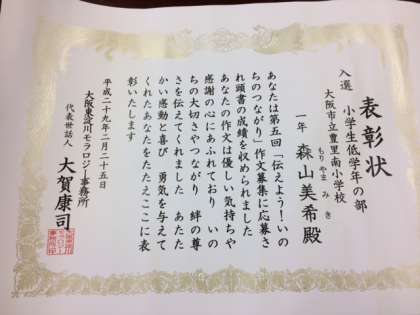 表彰状
入選 小学生低学年の部
大阪市立豊里南小学校
一年 森山美希殿
もりやま みき
あなたは第五回「伝えよう!いの
ちのつながり」作文募集に応募さ
れ頭書の成績を収められました
あなたの作文は優しい気持ちや
感謝の心にあふれており いの
ちの大切さやつながり 絆の尊
さを伝えてくれました あたた
かい感動と喜び 勇気を与えて
くれたあなたをたたえここに表
彰いたします
平成二十九年二月二十五日
大阪東淀川モラロジー事務所
代表世話人 大賀康司